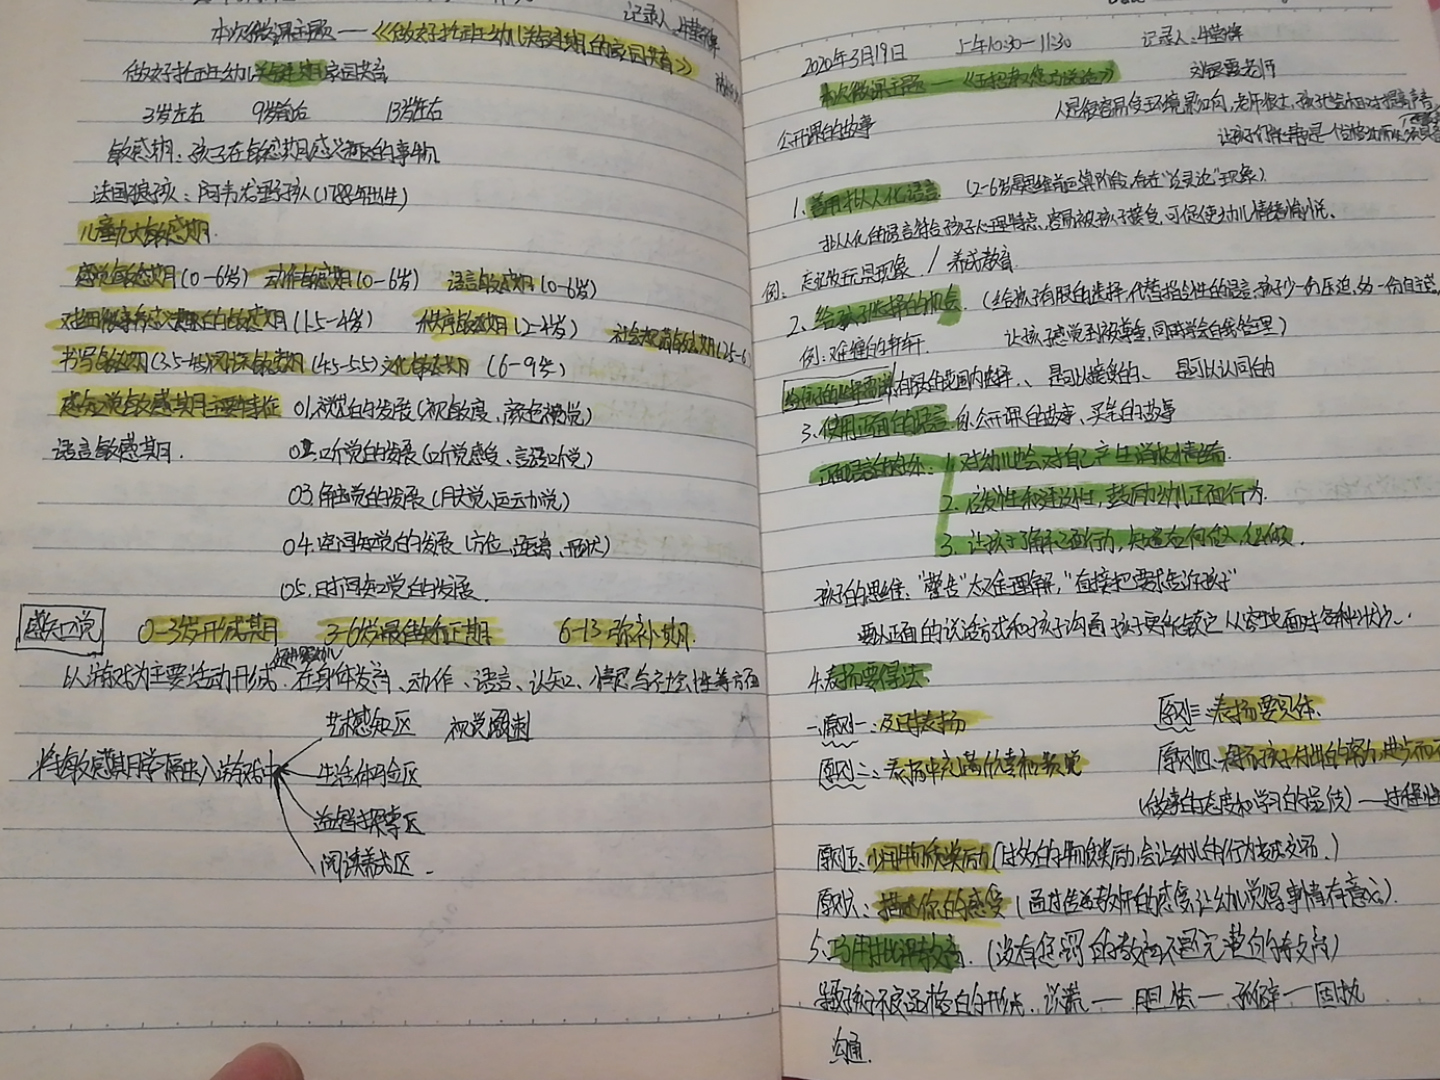 记录人:
本次微课主题——《做好托班幼儿关键期的家园共育》
做好托班幼儿关键期家园共育
3岁左右 9岁前后 13岁左右
敏感期:孩子在敏感期感兴趣的事物
法国狼孩:阿韦龙野孩(1788年出生)
儿童九大敏感期.
感觉敏感期(0-6岁) 动作敏感期(0-6岁) 语言敏感期(0-6岁)
对细微事物感兴趣的敏感期(1.5-4岁) 秩序敏感期(2-4岁) 社会规范敏感期(2.5-6
书写敏感期(3.5-4.5)阅读敏感期(4.5-5.5)文化敏感期(6-9岁)
感知觉敏感期主要特征 01.视觉的发展(视敏度、颜色视觉)
语言敏感期. 02.听觉的发展(听觉感受、言语听觉)
03.触觉的发展(肤觉、运动觉)
04.空间知觉的发展(方位、距离、形状)
05.时间知觉的发展.
感知觉 0-3岁形成期 3-6岁最佳矫正期 6-13弥补期.
以游戏为主要活动形式.在身体发育、动作、语言、认知、情感与社会性等方面
艺术感知区
将敏感期学习融入游戏中 生活体验区
益智探索区
阅读养成区.
2020年3月19日 上午10:30-11:30 记录人:
本次微课主题——
公开课的故事 人是很容易受环境影响,老师很大,孩子也会相对提高声音
让孩子们
1、善用拟人化语言 (2-6岁是思维前运算阶段,存在"泛灵论"现象)
拟人化的语言符合孩子心理特点,容易被孩子接受,可促使幼儿情绪愉悦.
例:忘记放玩具现象 / 养成教育
2、给孩子选择的机会.(给孩子有限的选择,代替指令性的语言,孩子少一份压迫,多一份自主
例: 让孩子感觉到被尊重,同时学会自我管理)
给孩子的选择要讲有限的范围内选择、是可以接受的、是可以认同的
3、使用正面的语言.例:公开课的故事、
正面语言的好处:1.对幼儿也会对自己产生消极情绪
2.启发性和活动性,鼓励幼儿正面行为.
3.让孩子了解正面行为,知道
孩子的思维:"警告"太难理解,"直接把要求告诉孩子"
要以正面的谈话方式和孩子沟通 孩子更能
4.表扬要得法.
原则一:及时表扬 原则三:表扬要具体.
原则二:表扬中充满 原则四:揭示孩子付出的努力、进步而不
(做事的态度和学习的
原则五:少用物质奖励(过分的物质奖励,会让幼儿的行为变成交易.)
原则六:描述你的感受(通过传达教师的感受,让幼儿觉得事情有意义).
5、巧用批评教育.(没有惩罚的教育不是完整的教育)
导致孩子不良品格的形成.说谎——胆怯——孤僻——固执
沟通.